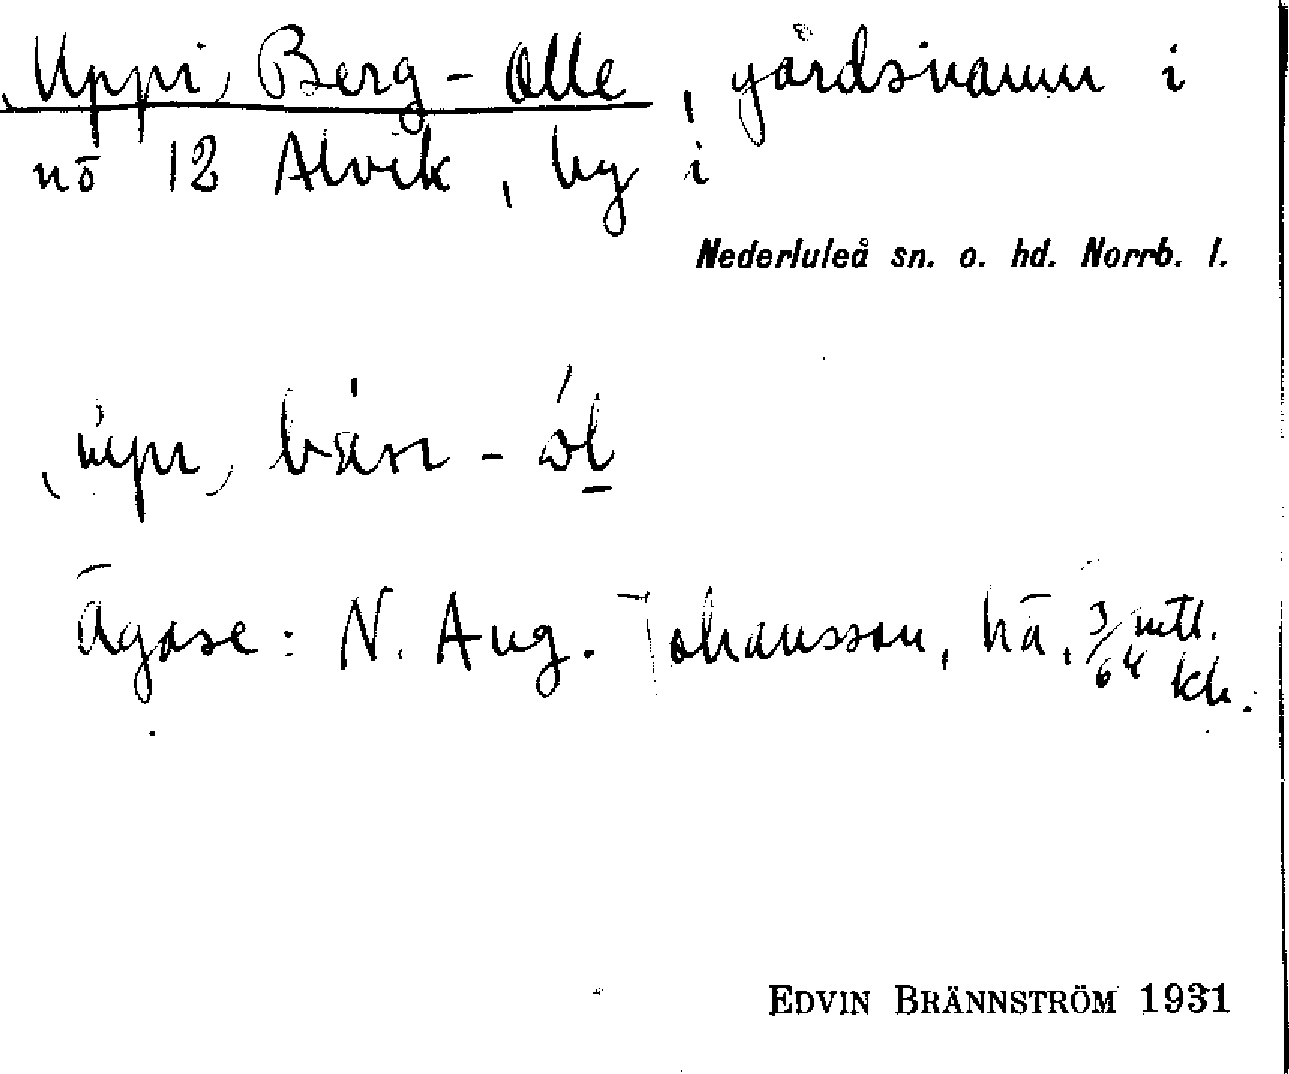 (Uppi) Berg-Olle, gårdsnamn i
nö 12 Alvik, by i
Nederluleå sn. o. hd. Norrb. l.
Ägare: N. Aug. Johansson, hä. 3/64 mtl.
kh.
EDVIN BRÄNNSTRÖM 1931